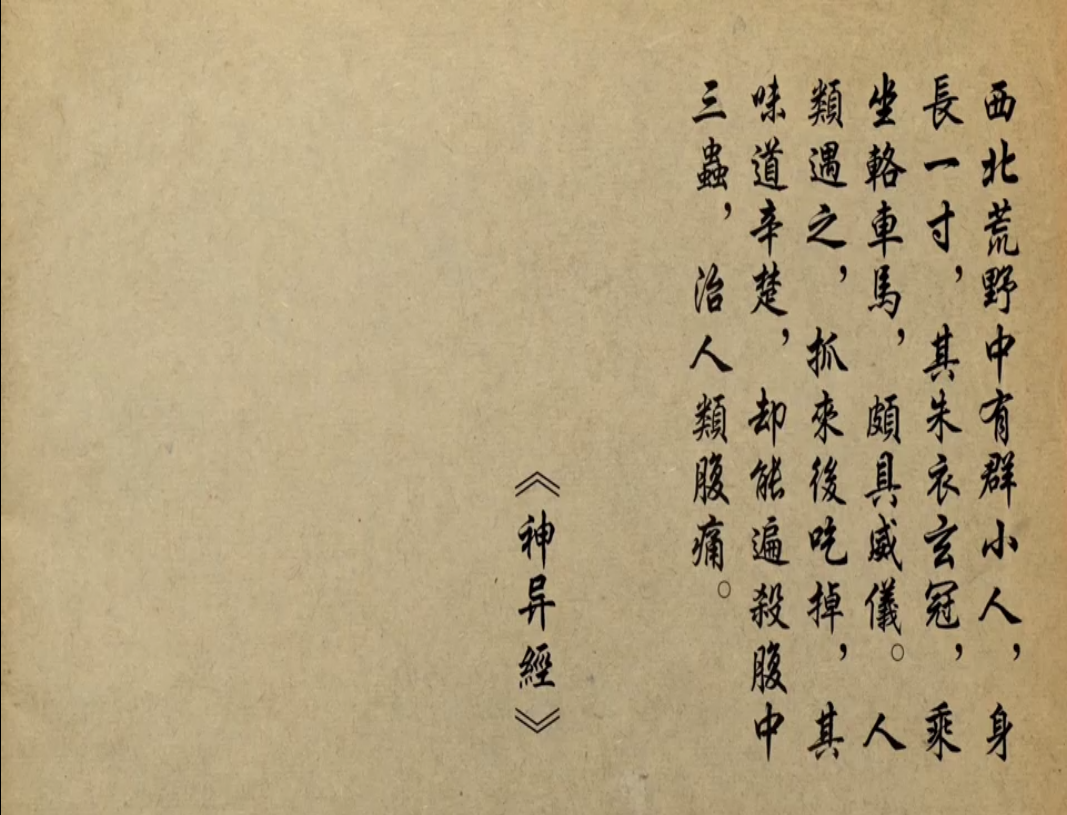 西北荒野中有群小人，身
長一寸，其朱衣玄冠，乘
坐輅車馬，頗具威儀。人
類遇之，抓來後吃掉，其
味道辛楚，却能遍殺腹中
三蟲，治人類腹痛。
《神异經》